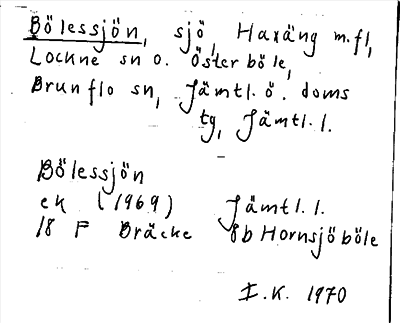 Bölessjön, sjö, Haxäng m.fl,
Lockne sn o. Österböle,
Brunflo sn, Jämtl. ö. doms
tg, Jämtl. l.
Bölessjön
ek (1969) Jämtl. l.
18 F Bräcke 8b Hornsjöböle
I.K. 1970